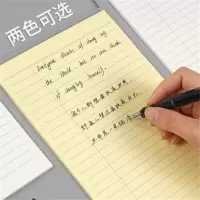 两色可选
Everyone thinks of changing
the world, but no one thinks
of changing himself.
每个人都想改变世界，
却没人想过改变自己。